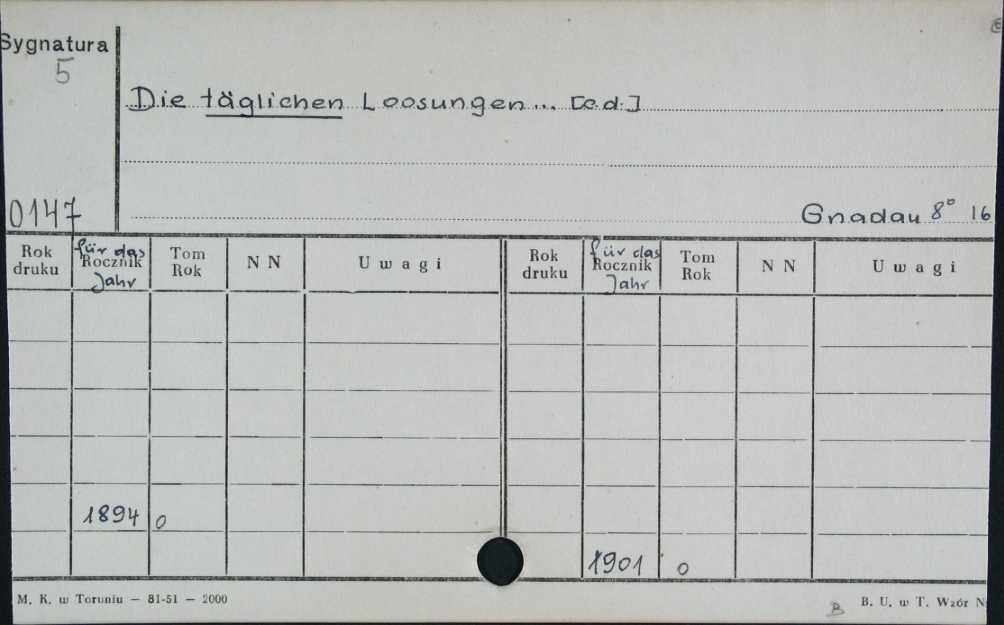 Sygnatura
5
Die täglichen Loosungen... [c.d.]
0147
Gnadau 8° 16
Rok druku für das Rocznik Jahr Tom Rok N N Uwagi Rok druku für das Rocznik Jahr Tom Rok N N Uwagi
1894 0
1901 0
M. K. w Toruniu — 81-51 — 2000
B
B. U. w T. Wzór N